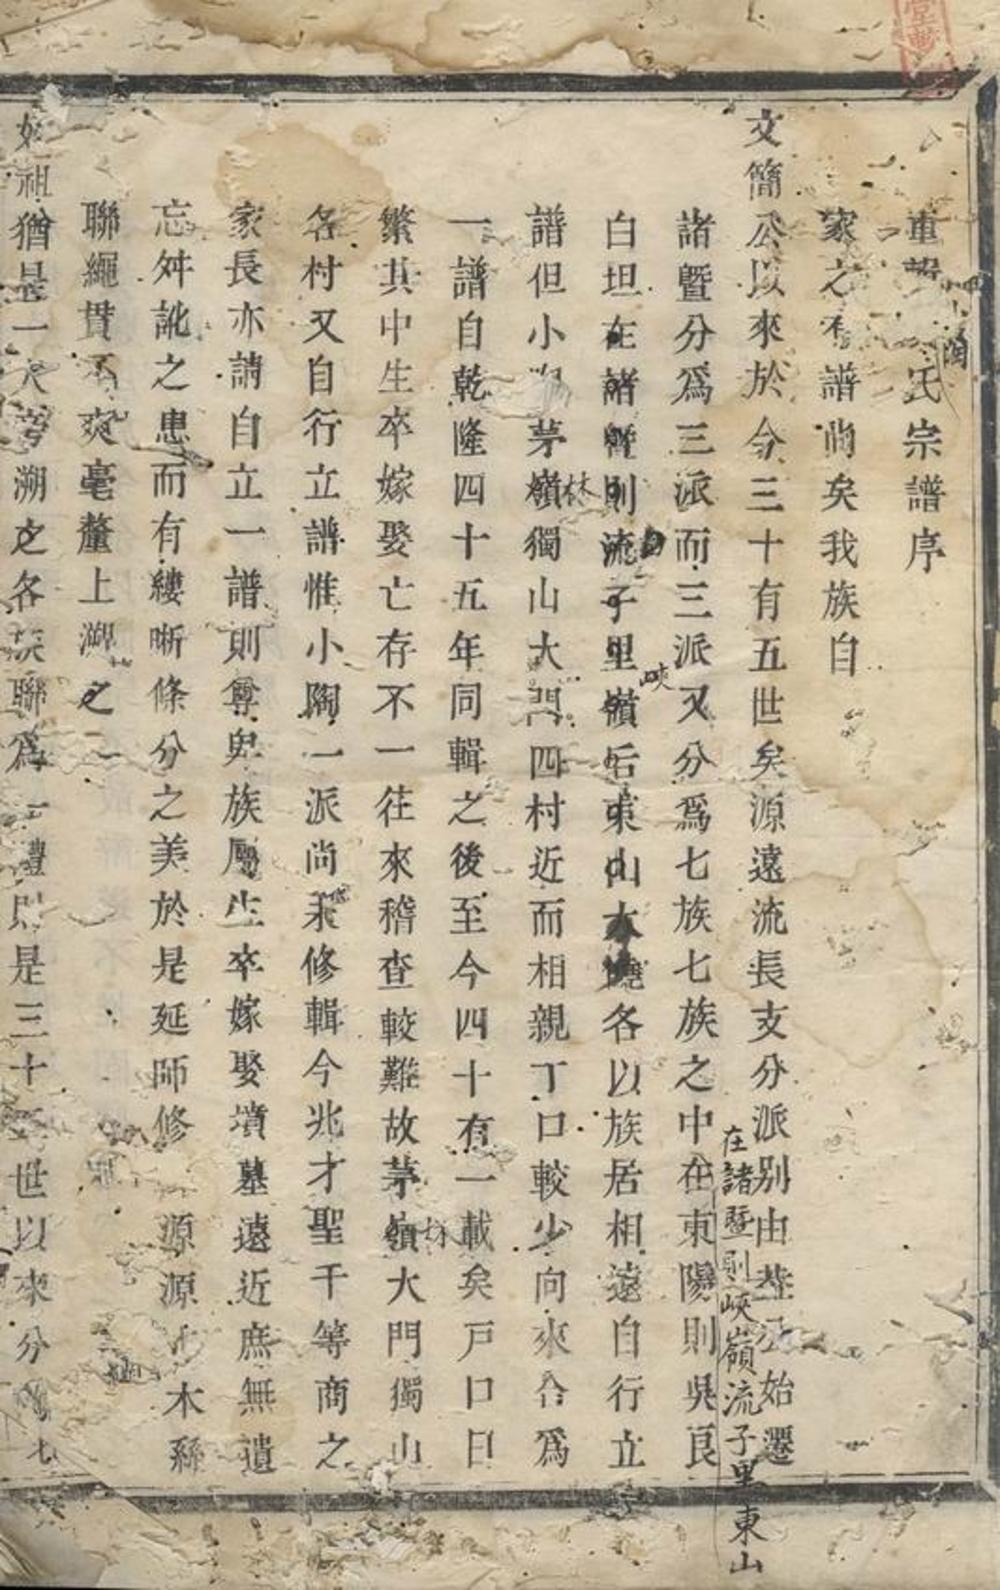 重 氏宗譜序
家之有譜尚矣我族自
文簡公以來於今三十有五世矣源遠流長支分派別由 公始遷
諸曁分爲三派而三派又分爲七族七族之中在東陽則吳良
在諸暨則峽嶺流子里東山
白坦在諸曁則流子里嶺后東山大 各以族居相遠自行立
峽
譜但小 茅嶺獨山大門四村近而相親丁口較少向來合爲
林
一譜自乾隆四十五年同輯之後至今四十有一載矣戶口日
繁其中生卒嫁娶亡存不一往來稽查較難故茅嶺大門獨山
林
各村又自行立譜惟小陶一派尚未修輯今兆才聖千等商之
家長亦請自立一譜則尊卑族屬生卒嫁娶墳墓遠近庶無遺
忘舛訛之患而有縷晰條分之美於是延師修 源源 木 
聯繩貫不爽毫釐上溯之
始祖猶是一 溯之各族聯爲一 則是三十 世以來分 七